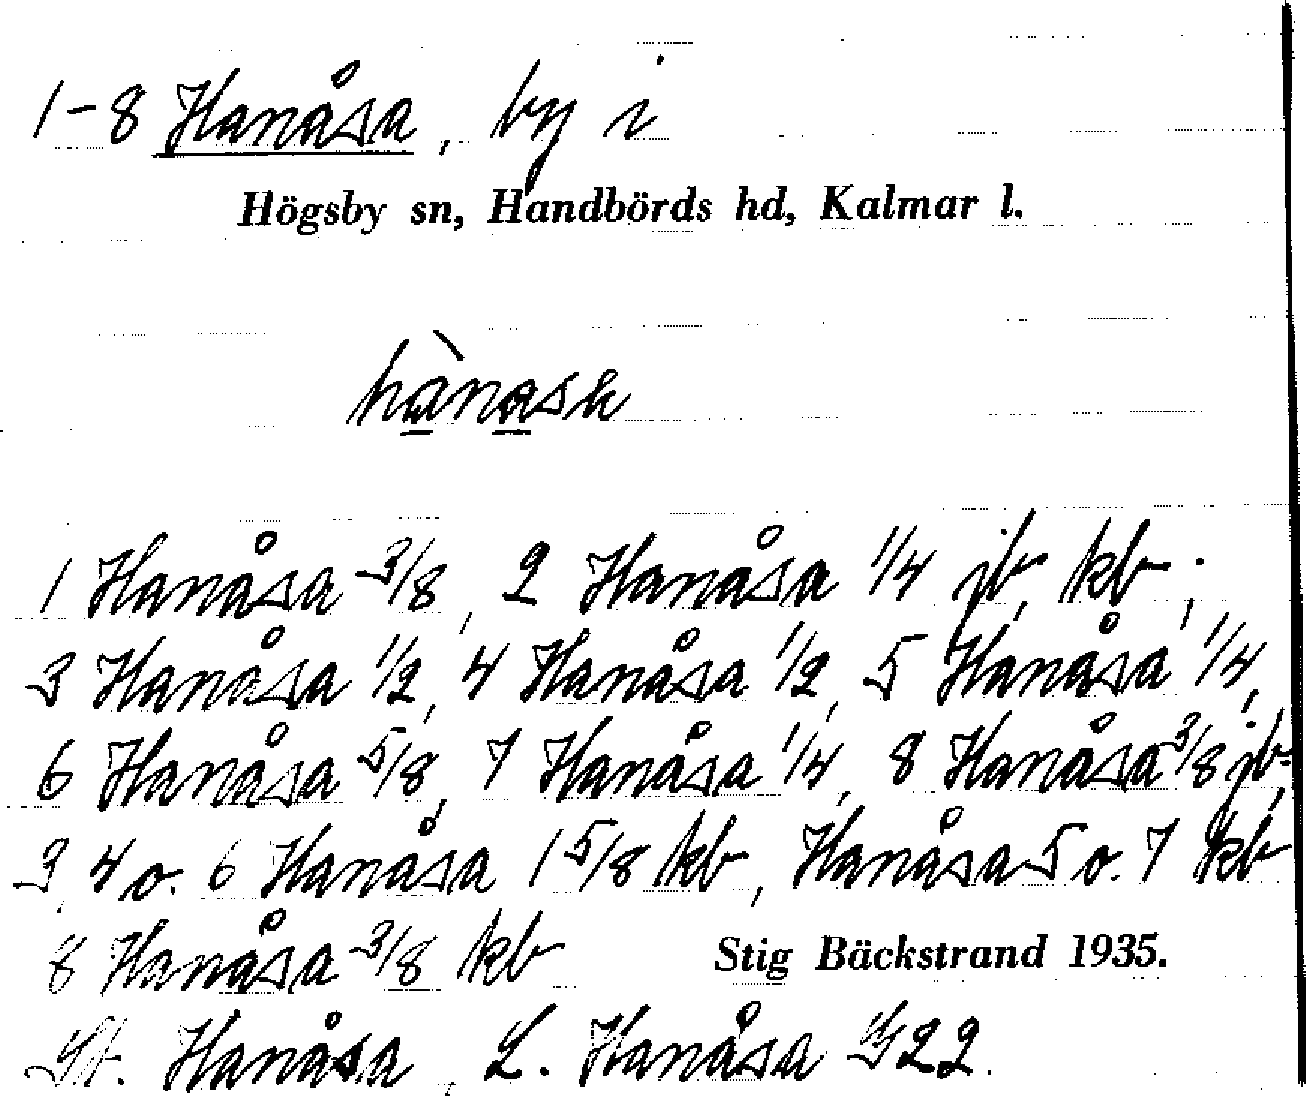 1-8 Hanåsa, by i
Högsby sn, Handbörds hd, Kalmar l.
hànask
1 Hanåsa 3/8, 2 Hanåsa 1/4 jb, kb;
3 Hanåsa 1/2, 4 Hanåsa 1/2, 5 Hanåsa 1/4,
6 Hanåsa 5/8, 7 Hanåsa 1/4, 8 Hanåsa 3/8 jb,
3, 4 o. 6 Hanåsa 1 5/8 kb, Hanåsa 5 o. 7 kb
8 Hanåsa 3/8 kb
Stig Bäckstrand 1935.
St. Hanåsa, L. Hanåsa G22.